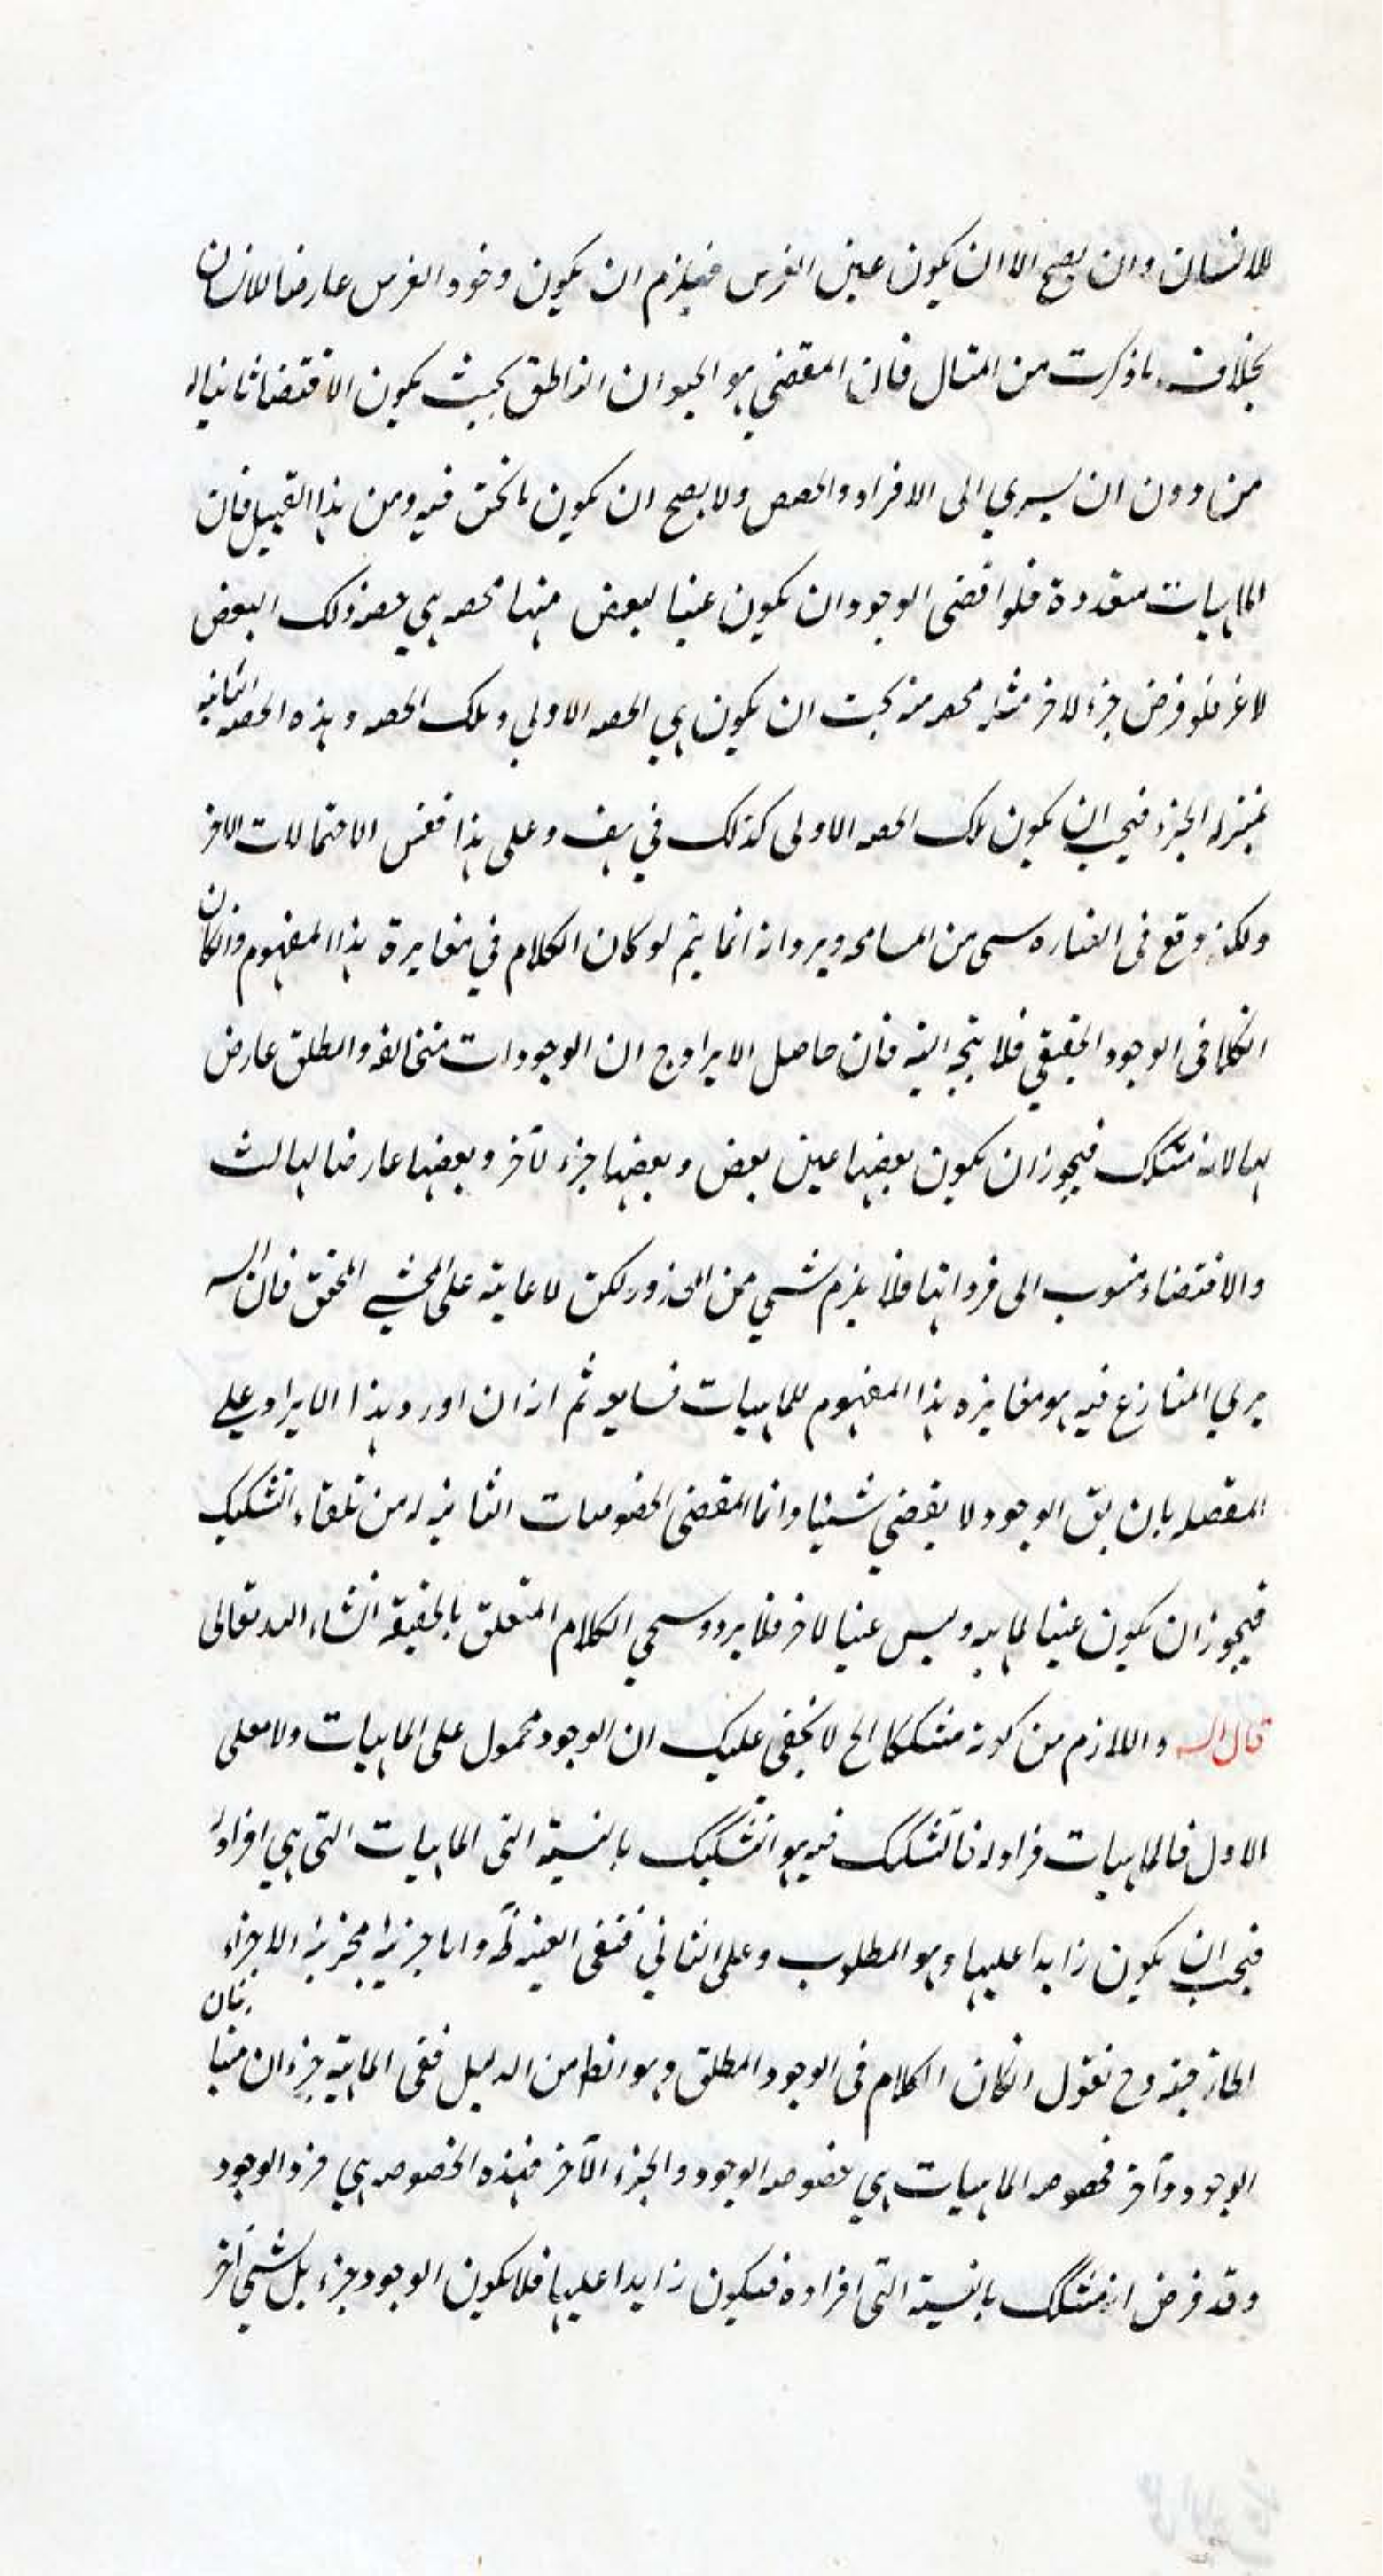 للانسان وان يصح الا ان يكون عين الفرس فيلزم ان يكون وجود الفرس عارضا للانسان
بخلاف ما ذكرت من المثال فان المقتضي هو الحيوان الناطق بحيث يكون الاقتضا ثانيا له
من دون ان يسري الى الافراد والحصص ولا يصح ان يكون ما نحن فيه ومن هذا القبيل فان
الماهيات متعددة فلو اقتضى الوجود ان يكون عينا لبعض منها فحصه هي حصه ذلك البعض
لا غر فلو فرض جزء لاخر مثلا فحصه منه يجب ان يكون هي الحصه الاولي وتلك الحصه وهذه الحصه الثانيه
بمنزله الجزء فيجب ان يكون تلك الحصه الاولى كذلك في هف وعلى هذا فقس الاحتمالات الاخر
ولكنه وقع فى العباره شى من المسامحه ويرد انه انما يتم لو كان الكلام في مغايرة هذا المفهوم وان كان
الكلا فى الوجود الحقيقي فلا يتجه اليه فان حاصل الايراد ح ان الوجودات متخالفه والمطلق عارض
لها لانه مشكك فيجوز ان يكون بعضها عين بعض وبعضها جزء لآخر وبعضها عارضا لثالث
والاقتضاء منسوب الى ذواتها فلا يلزم شي من المحذور لكن لا عايته على المحشي المحقق فان
يري المنازع فيه هو مغايره هذا المفهوم للماهيات ثم انه ان اورد هذا الايراد على
المفصله بان يق الوجود لا يقتضي شيئا وانما المقتضى الخصوصيات الثانيه له من تلقاء التشكيك
فيجوز ان يكون عينا لماهيه وليس عينا لاخر فلا يرد وسيجي الكلام المتعلق بالحقيقة انشاء الله تعالى
قال الش واللازم من كونه مشككا الخ لا يخفى عليك ان الوجود محمول على الماهيات ولا معلى
الاول فالماهيات افراد له فالتشكيك فيه هو التشكيك بالنسبة الى الماهيات التى هي افراده
فيجب ان يكون زايدا عليها وهو المطلوب وعلى الثاني فنفى العينيه ظ واما جزئيه الاجزاء
الخارجيه وح نقول ان كان الكلام فى الوجود المطلق وهو الظ من الدليل ففى الماهية جزءان متباينان
الوجود وآخر فخصوصه الماهيات هي خصوصه الوجود والجزء الآخر فهذه الخصوصه هي فرد الوجود
وقد فرض انه مشكك بالنسبة الى افراده فيكون زايدا عليها فلا يكون الوجود جزء بل شي آخر